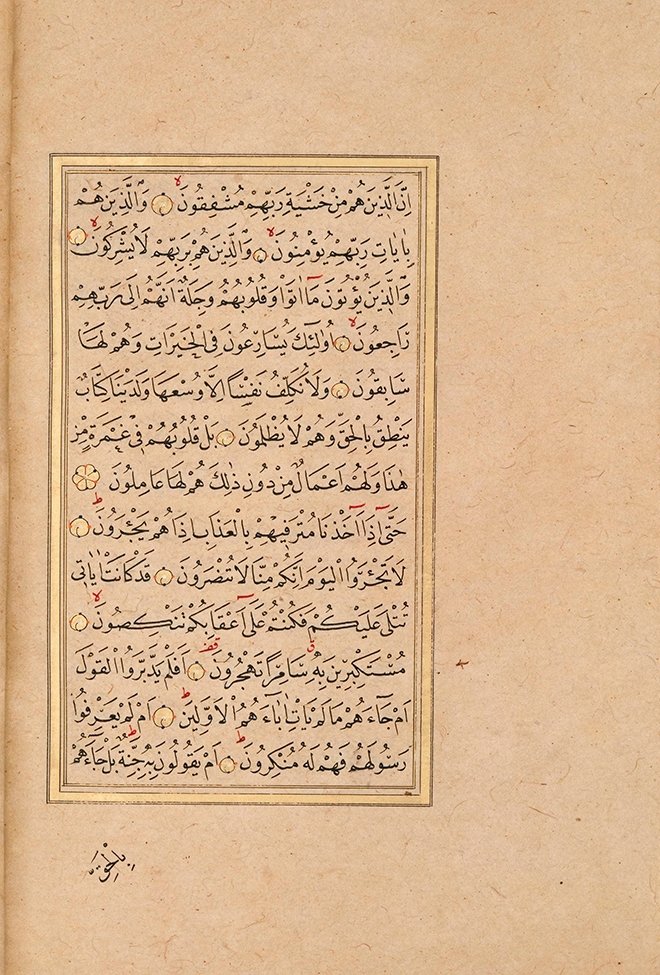 اِنَّ الَّذٖينَ هُمْ مِنْ خَشْيَةِ رَبِّهِمْ مُشْفِقُونَ وَالَّذٖينَ هُمْ
بِاٰيَاتِ رَبِّهِمْ يُؤْمِنُونَ وَالَّذٖينَ هُمْ بِرَبِّهِمْ لَا يُشْرِكُونَ
وَالَّذٖينَ يُؤْتُونَ مَٓا اٰتَوْا وَقُلُوبُهُمْ وَجِلَةٌ اَنَّهُمْ اِلٰى رَبِّهِمْ
رَاجِعُونَ اُولٰٓئِكَ يُسَارِعُونَ فِى الْخَيْرَاتِ وَهُمْ لَهَا
سَابِقُونَ وَلَا نُكَلِّفُ نَفْسًا اِلَّا وُسْعَهَا وَلَدَيْنَا كِتَابٌ
يَنْطِقُ بِالْحَقِّ وَهُمْ لَا يُظْلَمُونَ بَلْ قُلُوبُهُمْ فٖى غَمْرَةٍ مِنْ
هٰذَا وَلَهُمْ اَعْمَالٌ مِنْ دُونِ ذٰلِكَ هُمْ لَهَا عَامِلُونَ
حَتّٰٓى اِذَٓا اَخَذْنَا مُتْرَفٖيهِمْ بِالْعَذَابِ اِذَا هُمْ يَجْئَرُونَ ط
لَا تَجْئَرُوا الْيَوْمَ اِنَّكُمْ مِنَّا لَا تُنْصَرُونَ قَدْ كَانَتْ اٰيَاتٖى
تُتْلٰى عَلَيْكُمْ فَكُنْتُمْ عَلٰٓى اَعْقَابِكُمْ تَنْكِصُونَ لا
مُسْتَكْبِرٖينَ بِهٖ ق سَامِرًا تَهْجُرُونَ قف اَفَلَمْ يَدَّبَّرُوا الْقَوْلَ
اَمْ جَٓاءَهُمْ مَا لَمْ يَاْتِ اٰبَٓاءَهُمُ الْاَوَّلٖينَ ط اَمْ لَمْ يَعْرِفُوا
رَسُولَهُمْ فَهُمْ لَهُ مُنْكِرُونَ ط اَمْ يَقُولُونَ بِهٖ جِنَّةٌ ط بَلْ جَٓاءَهُمْ
بِالْحَقِّ